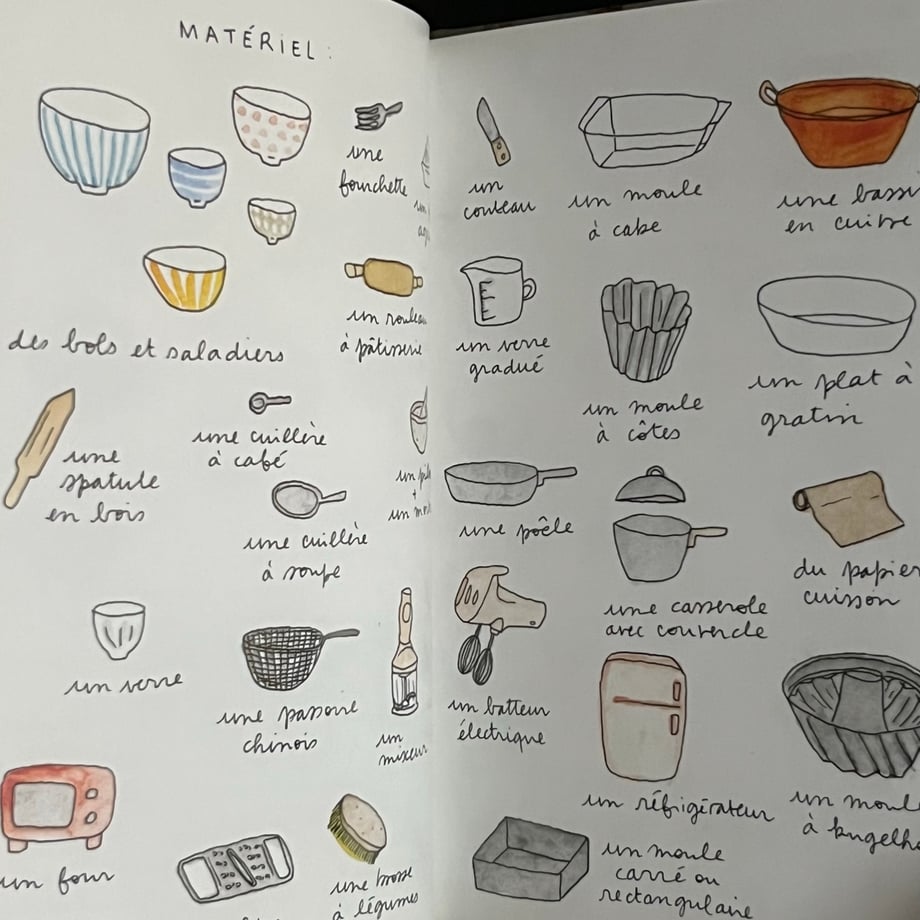 MATÉRIEL :
une
fourchette
des bols et saladiers
un
à pâtisserie
une
spatule
en bois
une cuillère
à café
une cuillère
à soupe
un
un verre
une passoire
chinois
un
mixeur
un four
une brosse
à légumes
un
couteau
un moule
à cake
une
en cuivre
un verre
gradué
un moule
à côtes
un plat à
gratin
une poêle
une casserole
avec couvercle
du papier
cuisson
un batteur
électrique
un réfrigérateur
un
à
un moule
carré ou
rectangulaire